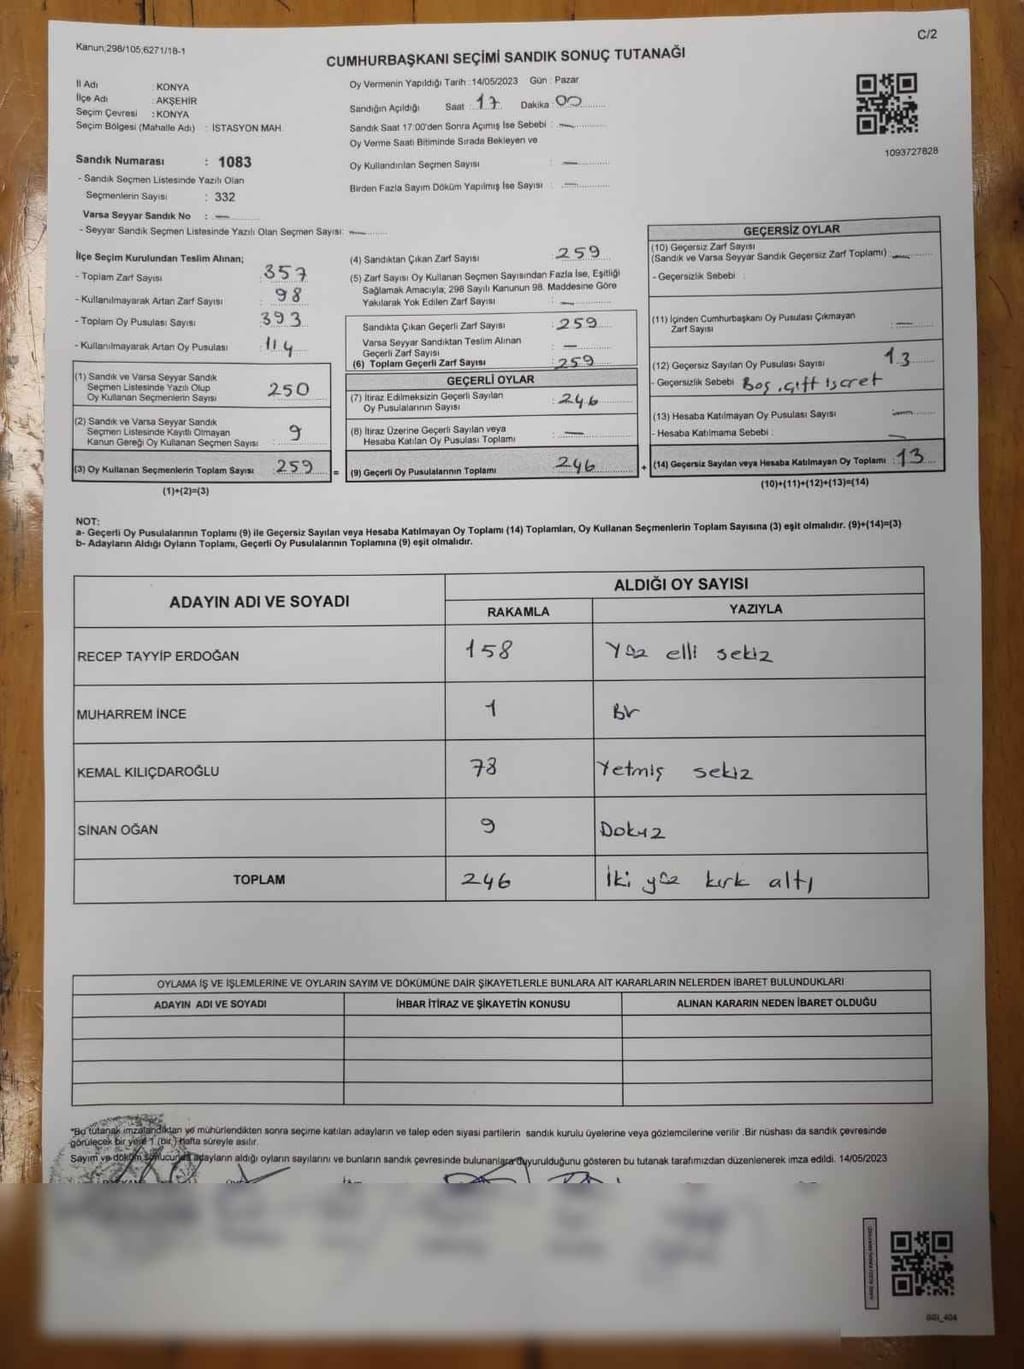 Kanun;298/105;6271/18-1
C/2
CUMHURBAŞKANI SEÇİMİ SANDIK SONUÇ TUTANAĞI
İl Adı : KONYA
İlçe Adı : AKŞEHİR
Seçim Çevresi : KONYA
Seçim Bölgesi (Mahalle Adı) : İSTASYON MAH.
Sandık Numarası : 1083
- Sandık Seçmen Listesinde Yazılı Olan
Seçmenlerin Sayısı : 332
Varsa Seyyar Sandık No : —
- Seyyar Sandık Seçmen Listesinde Yazılı Olan Seçmen Sayısı: —
Oy Vermenin Yapıldığı Tarih :14/05/2023 Gün : Pazar
Sandığın Açıldığı Saat : 17 Dakika : 00
Sandık Saat 17:00'den Sonra Açımış İse Sebebi : —
Oy Verme Saati Bitiminde Sırada Bekleyen ve
Oy Kullandırılan Seçmen Sayısı : —
Birden Fazla Sayım Döküm Yapılmış İse Sayısı : —
1093727828
İlçe Seçim Kurulundan Teslim Alınan;
- Toplam Zarf Sayısı : 357
- Kullanılmayarak Artan Zarf Sayısı : 98
- Toplam Oy Pusulası Sayısı : 393
- Kullanılmayarak Artan Oy Pusulası : 114
(1) Sandık ve Varsa Seyyar Sandık
Seçmen Listesinde Yazılı Olup
Oy Kullanan Seçmenlerin Sayısı : 250
(2) Sandık ve Varsa Seyyar Sandık
Seçmen Listesinde Kayıtlı Olmayan
Kanun Gereği Oy Kullanan Seçmen Sayısı : 9
(3) Oy Kullanan Seçmenlerin Toplam Sayısı : 259
(1)+(2)=(3)
=
(4) Sandıktan Çıkan Zarf Sayısı : 259
(5) Zarf Sayısı Oy Kullanan Seçmen Sayısından Fazla İse, Eşitliği
Sağlamak Amacıyla; 298 Sayılı Kanunun 98. Maddesine Göre
Yakılarak Yok Edilen Zarf Sayısı : —
Sandıkta Çıkan Geçerli Zarf Sayısı : 259
Varsa Seyyar Sandıktan Teslim Alınan
Geçerli Zarf Sayısı : —
(6) Toplam Geçerli Zarf Sayısı : 259
GEÇERLİ OYLAR
(7) İtiraz Edilmeksizin Geçerli Sayılan
Oy Pusulalarının Sayısı : 246
(8) İtiraz Üzerine Geçerli Sayılan veya
Hesaba Katılan Oy Pusulası Toplamı : —
(9) Geçerli Oy Pusulalarının Toplamı : 246
+
GEÇERSİZ OYLAR
(10) Geçersiz Zarf Sayısı
(Sandık ve Varsa Seyyar Sandık Geçersiz Zarf Toplamı) : —
- Geçersizlik Sebebi :
(11) İçinden Cumhurbaşkanı Oy Pusulası Çıkmayan
Zarf Sayısı : —
(12) Geçersiz Sayılan Oy Pusulası Sayısı : 13
- Geçersizlik Sebebi : Boş, çift işcret
(13) Hesaba Katılmayan Oy Pusulası Sayısı : —
- Hesaba Katılmama Sebebi : —
(14) Geçersiz Sayılan veya Hesaba Katılmayan Oy Toplamı : 13
(10)+(11)+(12)+(13)=(14)
NOT:
a- Geçerli Oy Pusulalarının Toplamı (9) ile Geçersiz Sayılan veya Hesaba Katılmayan Oy Toplamı (14) Toplamları, Oy Kullanan Seçmenlerin Toplam Sayısına (3) eşit olmalıdır. (9)+(14)=(3)
b- Adayların Aldığı Oyların Toplamı, Geçerli Oy Pusulalarının Toplamına (9) eşit olmalıdır.
ADAYIN ADI VE SOYADI ALDIĞI OY SAYISI
RAKAMLA YAZIYLA
RECEP TAYYİP ERDOĞAN 158 Yüz elli sekiz
MUHARREM İNCE 1 Bir
KEMAL KILIÇDAROĞLU 78 Yetmiş sekiz
SİNAN OĞAN 9 Dokuz
TOPLAM 246 İki yüz kırk altı
OYLAMA İŞ VE İŞLEMLERİNE VE OYLARIN SAYIM VE DÖKÜMÜNE DAİR ŞİKAYETLERLE BUNLARA AİT KARARLARIN NELERDEN İBARET BULUNDUKLARI
ADAYIN ADI VE SOYADI İHBAR İTİRAZ VE ŞİKAYETİN KONUSU ALINAN KARARIN NEDEN İBARET OLDUĞU
*Bu tutanak imzalandıktan ve mühürlendikten sonra seçime katılan adayların ve talep eden siyasi partilerin sandık kurulu üyelerine veya gözlemcilerine verilir .Bir nüshası da sandık çevresinde
görülecek bir yere 1 (bir ) hafta süreyle asılır.
Sayım ve döküm sonucunda adayların aldığı oyların sayılarını ve bunların sandık çevresinde bulunanlara duyurulduğunu gösteren bu tutanak tarafımızdan düzenlenerek imza edildi. 14/05/2023